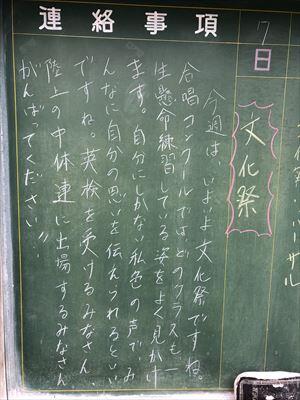 連絡事項
17
日
文化祭
今週は、いよいよ文化祭ですね。
合唱コンクールでは、どのクラスも一
生懸命練習している姿をよく見かけ
ます。自分にしかない私色の声で、み
んなに自分の思いを伝えられるといい
ですね。英検を受けるみなさん、
陸上の中体連に出場するみなさん
がんばってください!!